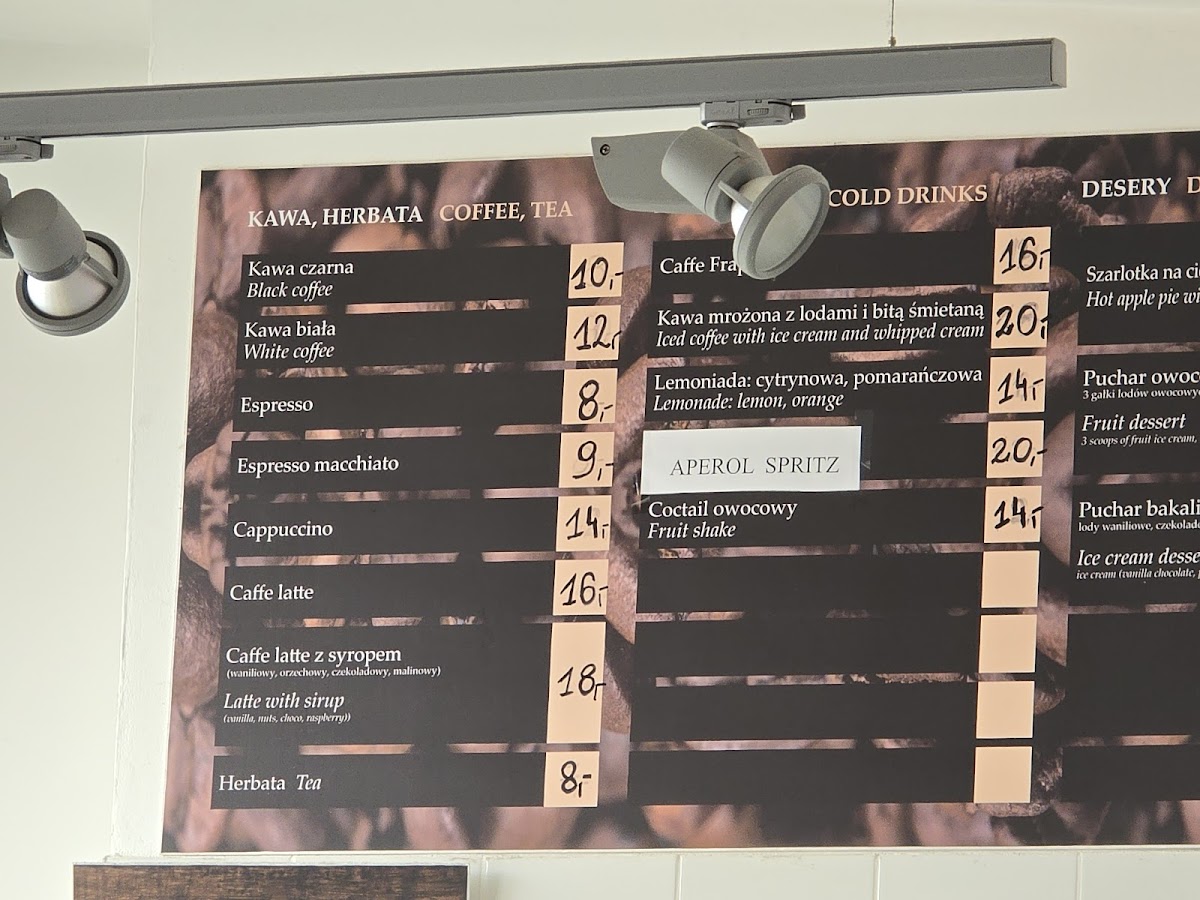 KAWA, HERBATA COFFEE, TEA
Kawa czarna 10,-
Black coffee
Kawa biała 12,-
White coffee
Espresso 8,-
Espresso macchiato 9,-
Cappuccino 14,-
Caffe latte 16,-
Caffe latte z syropem
(waniliowy, orzechowy, czekoladowy, malinowy)
18,-
Latte with sirup
(vanilla, nuts, choco, raspberry))
Herbata Tea 8,-
COLD DRINKS
Caffe 16,-
Kawa mrożona z lodami i bitą śmietaną 20,-
Iced coffee with ice cream and whipped cream
Lemoniada: cytrynowa, pomarańczowa 14,-
Lemonade: lemon, orange
APEROL SPRITZ 20,-
Coctail owocowy 14,-
Fruit shake
DESERY
Szarlotka na
Hot apple pie
Puchar
3 gałki lodów
Fruit dessert
3 scoops of fruit ice cream,
Puchar
lody waniliowe,
Ice cream
ice cream (vanilla chocolate,